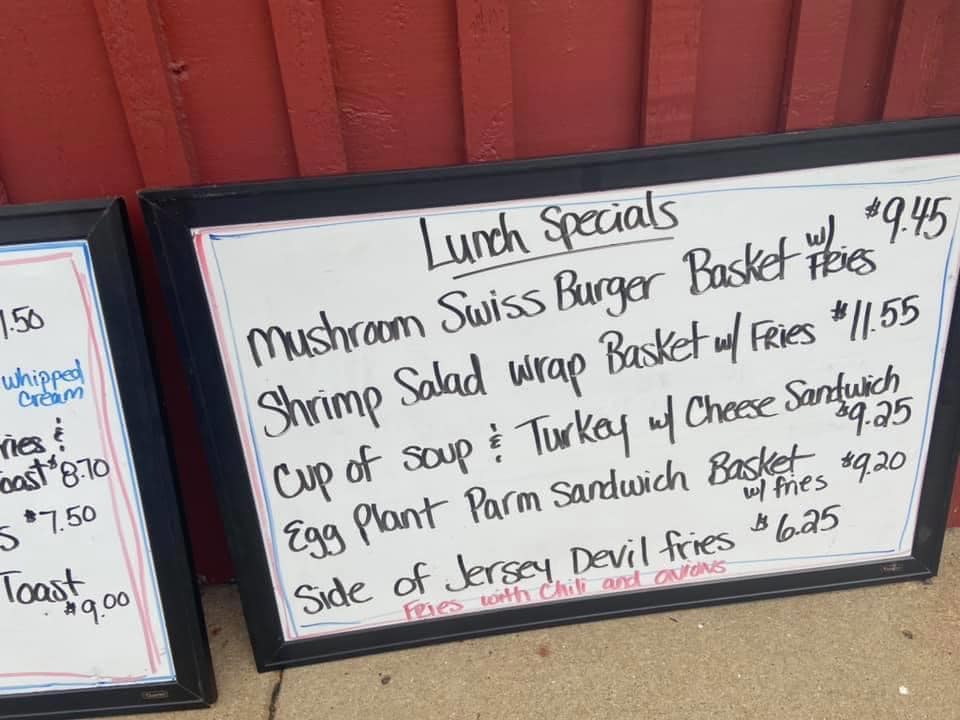 1.50
whipped
cream
ries &
oast $8.70
s $7.50
Toast
$9.00
Lunch Specials
Mushroom Swiss Burger Basket w/ Fries $9.45
Shrimp Salad wrap Basket w/ Fries $11.55
Cup of soup & Turkey w/ Cheese Sandwich
$9.25
Egg Plant Parm Sandwich Basket
w/ fries $9.20
Side of Jersey Devil fries $6.25
Fries with Chili and onions